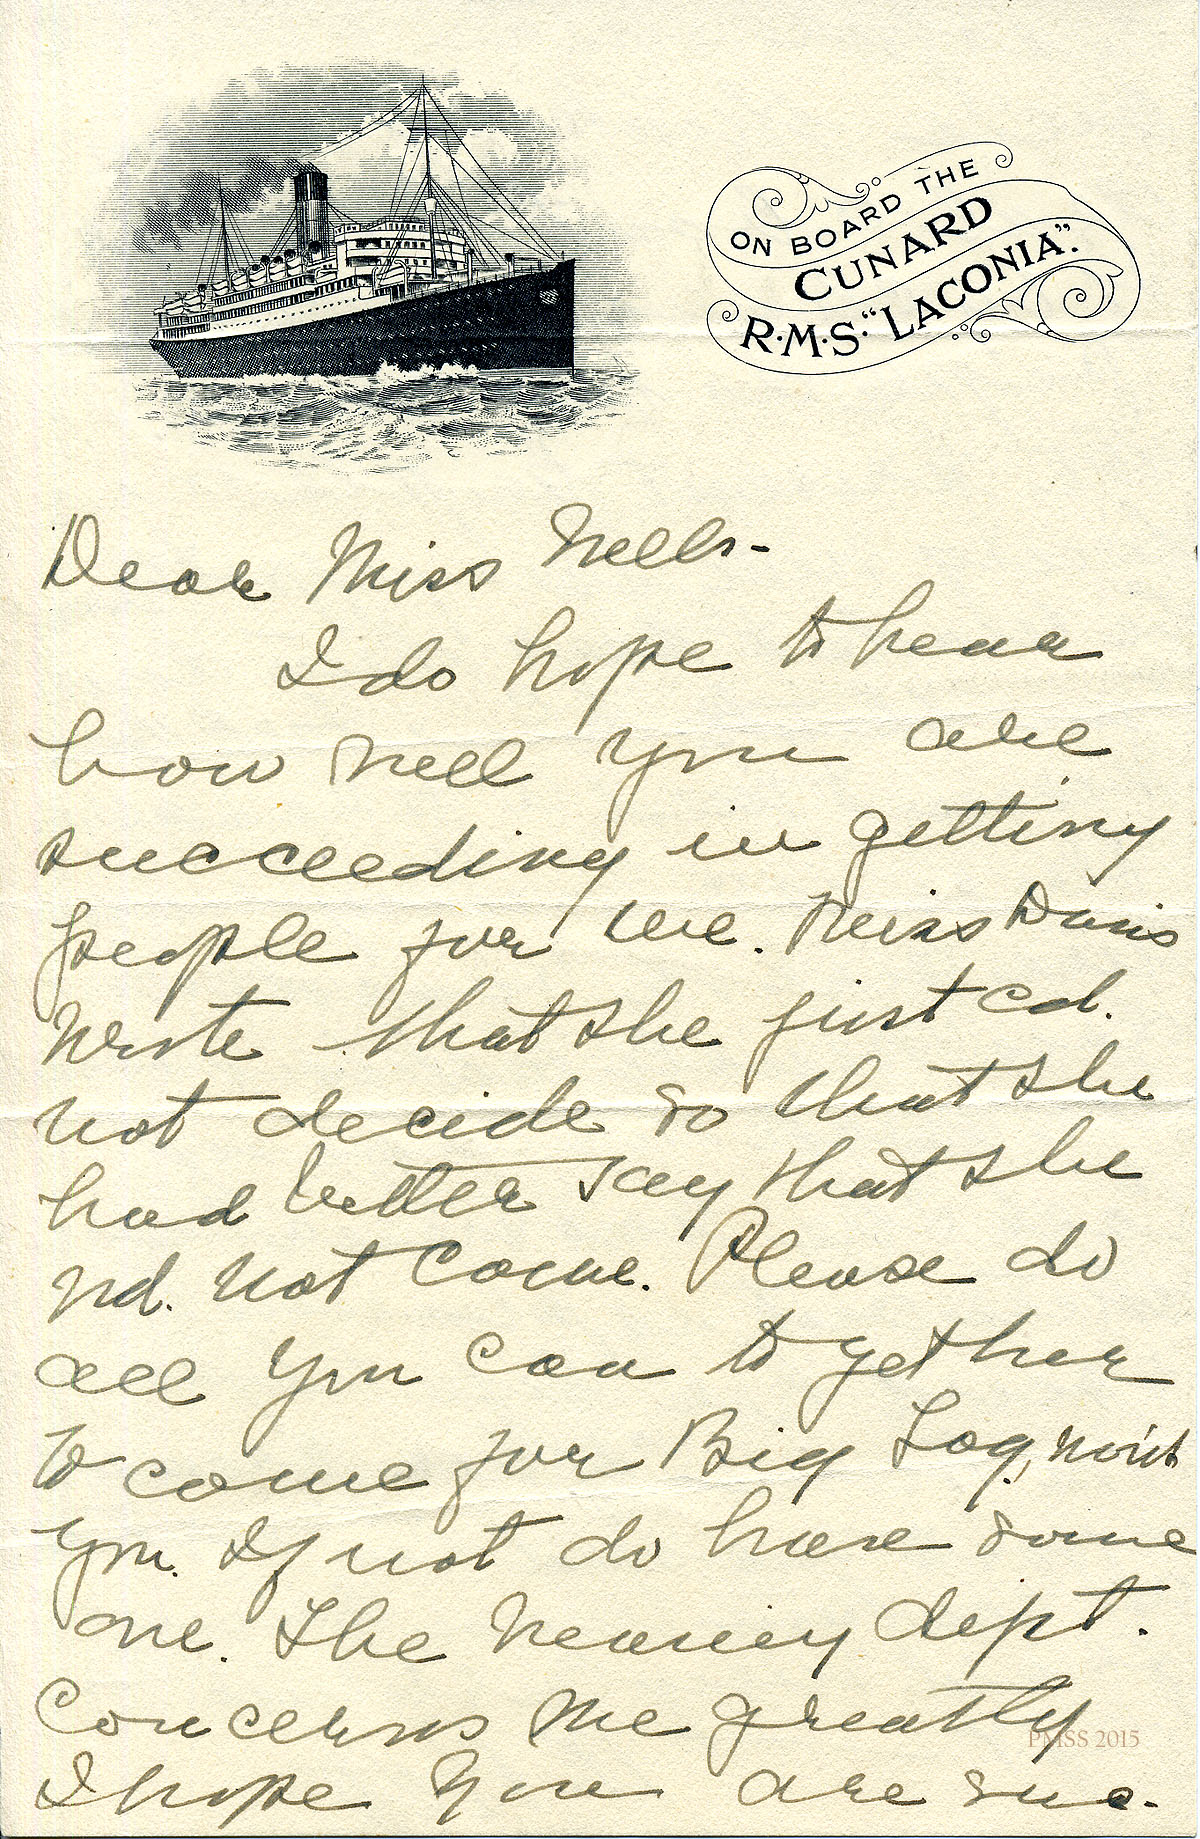 ON BOARD THE
CUNARD
R.M.S. "LACONIA".
Dear Miss Wells-
I do hope to hear
how well you are
succeeding in getting
people for we. Miss Davis
wrote that she just cd.
not decide so that she
had better say that she
wd. not come. Please do
all you can to get her
to come for Big Log, won't
you. If not do have some
one. The Weaving dept.
Concerns me greatly
I hope you are suc-
PMSS 2015